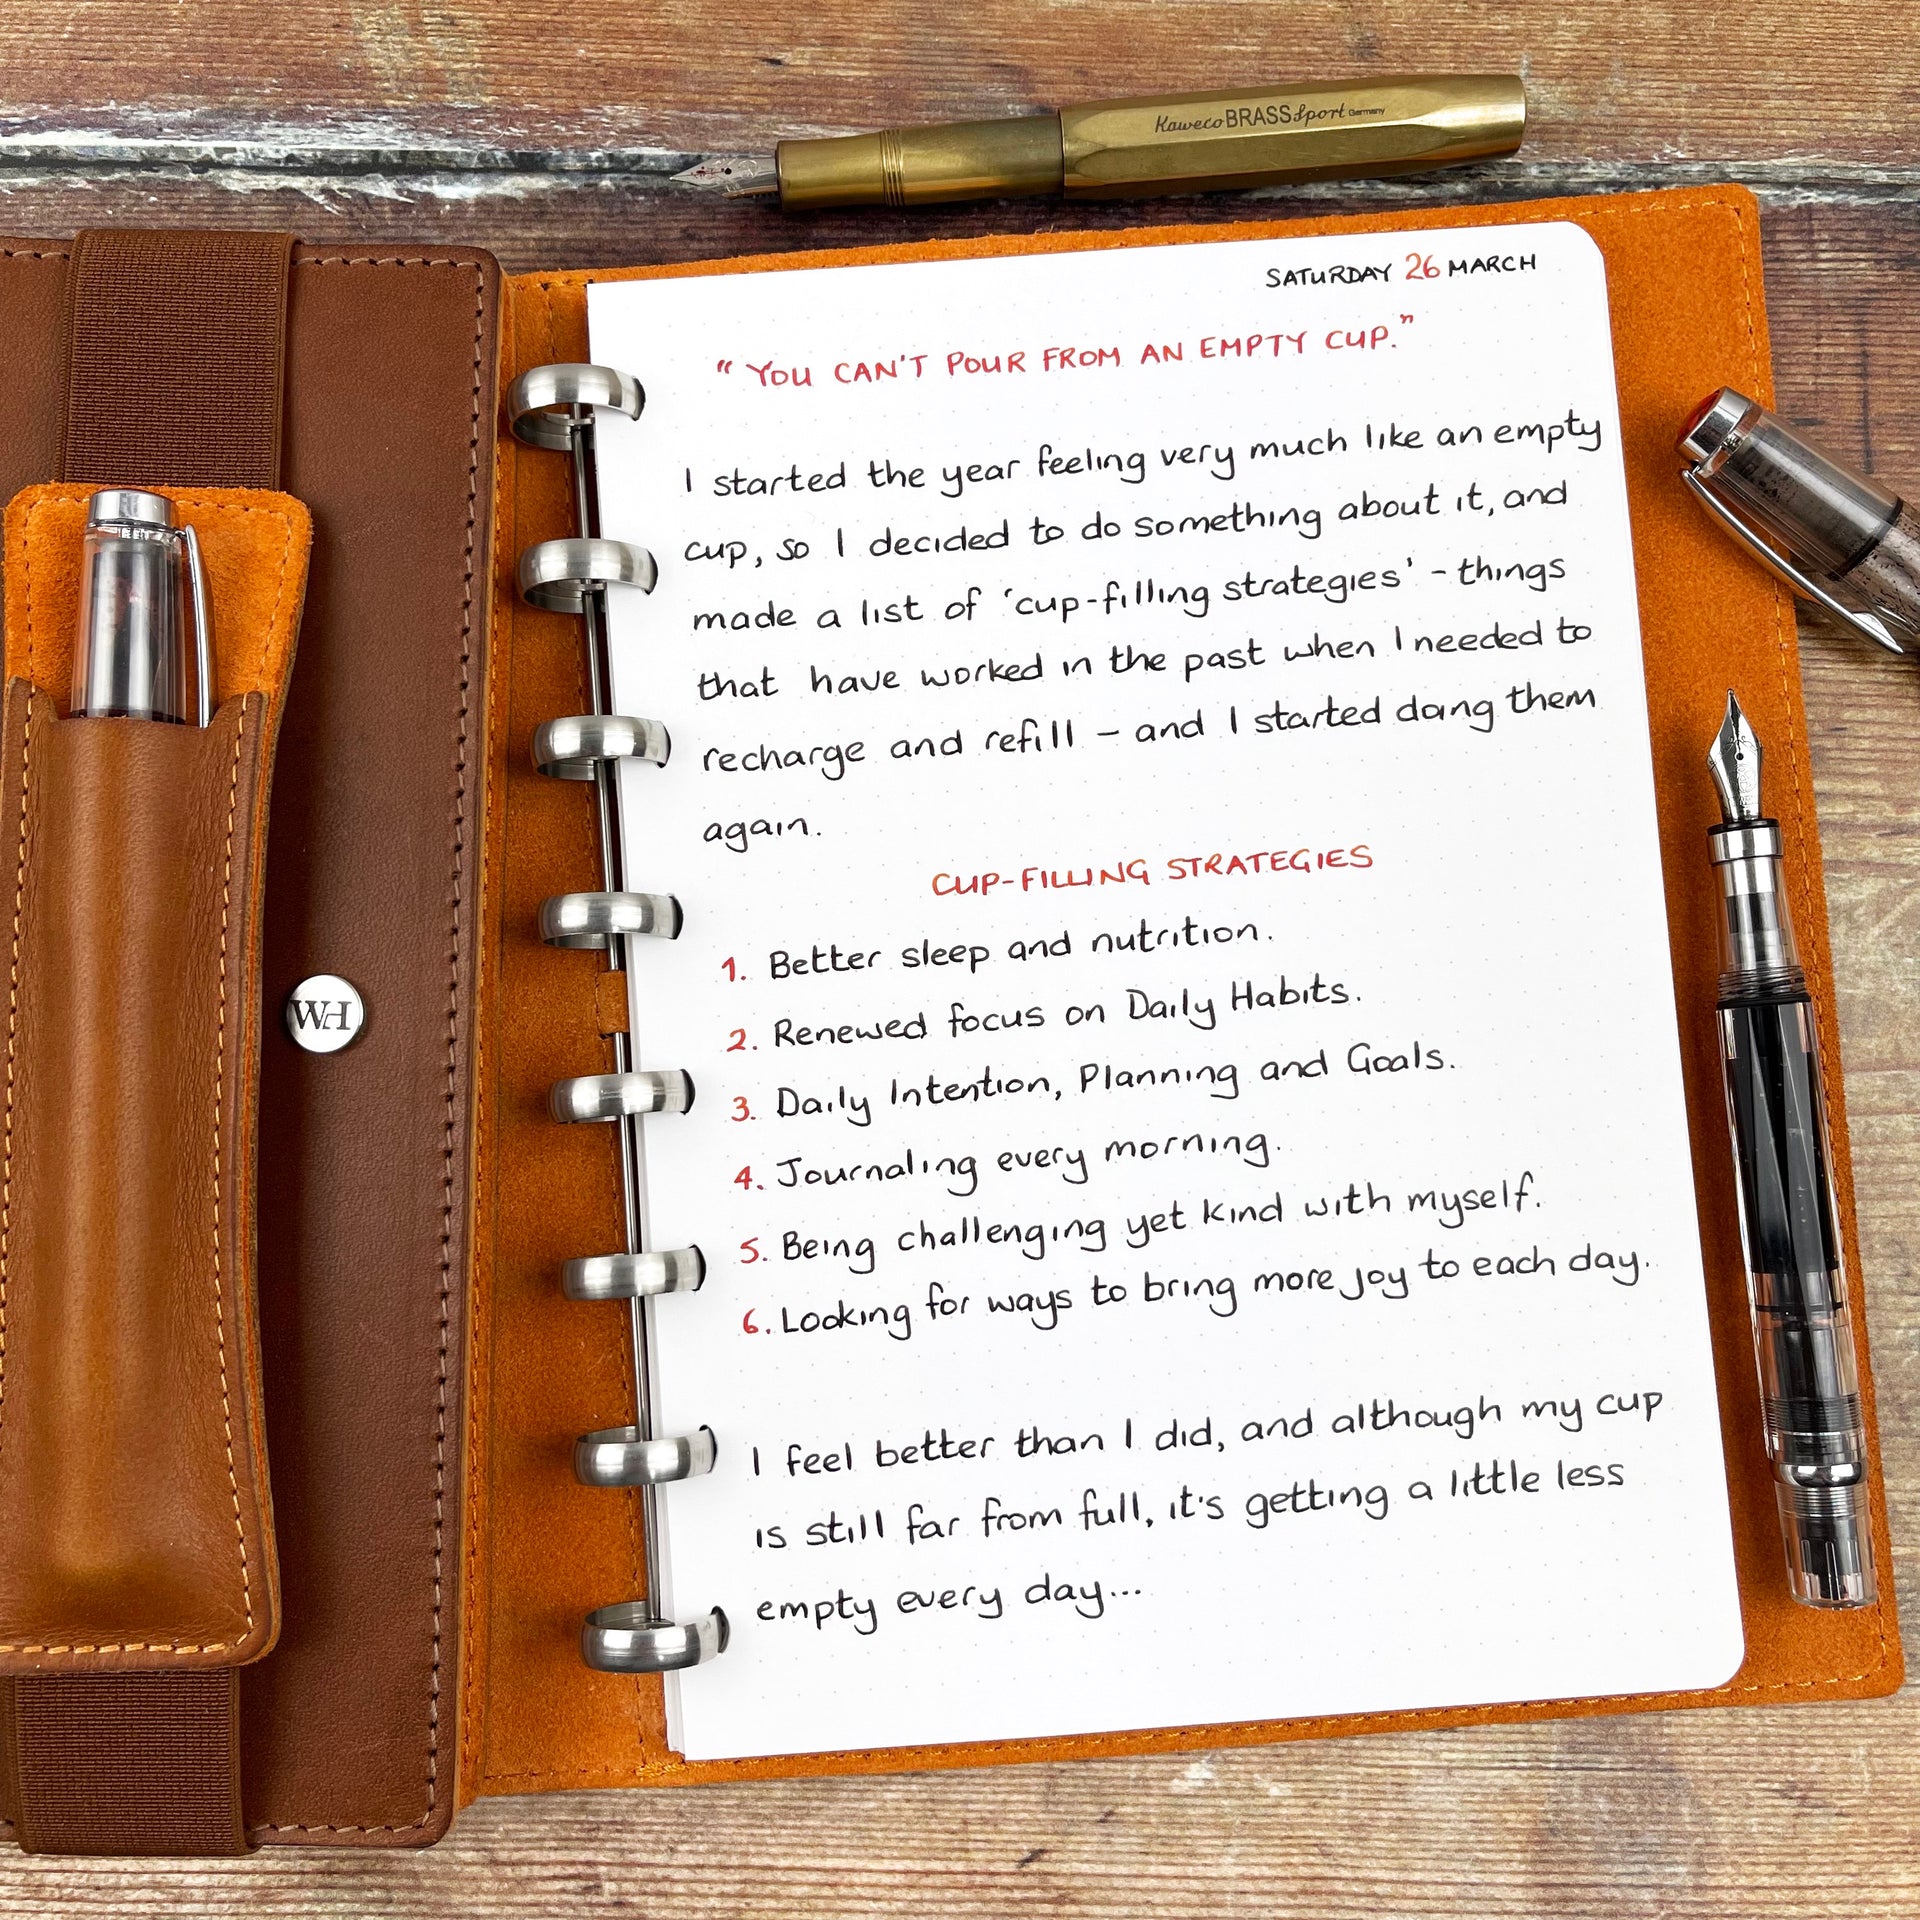 Kaweco BRASS Sport Germany
SATURDAY 26 MARCH
"YOU CAN'T POUR FROM AN EMPTY CUP."
I started the year feeling very much like an empty
cup, so I decided to do something about it, and
made a list of 'cup-filling strategies' - things
that have worked in the past when I needed to
recharge and refill – and I started doing them
again.
CUP-FILLING STRATEGIES
1. Better sleep and nutrition.
2. Renewed focus on Daily Habits.
3. Daily Intention, Planning and Goals.
4. Journaling every morning.
5. Being challenging yet kind with myself.
6. Looking for ways to bring more joy to each day.
I feel better than I did, and although my cup
is still far from full, it's getting a little less
empty every day...
WH